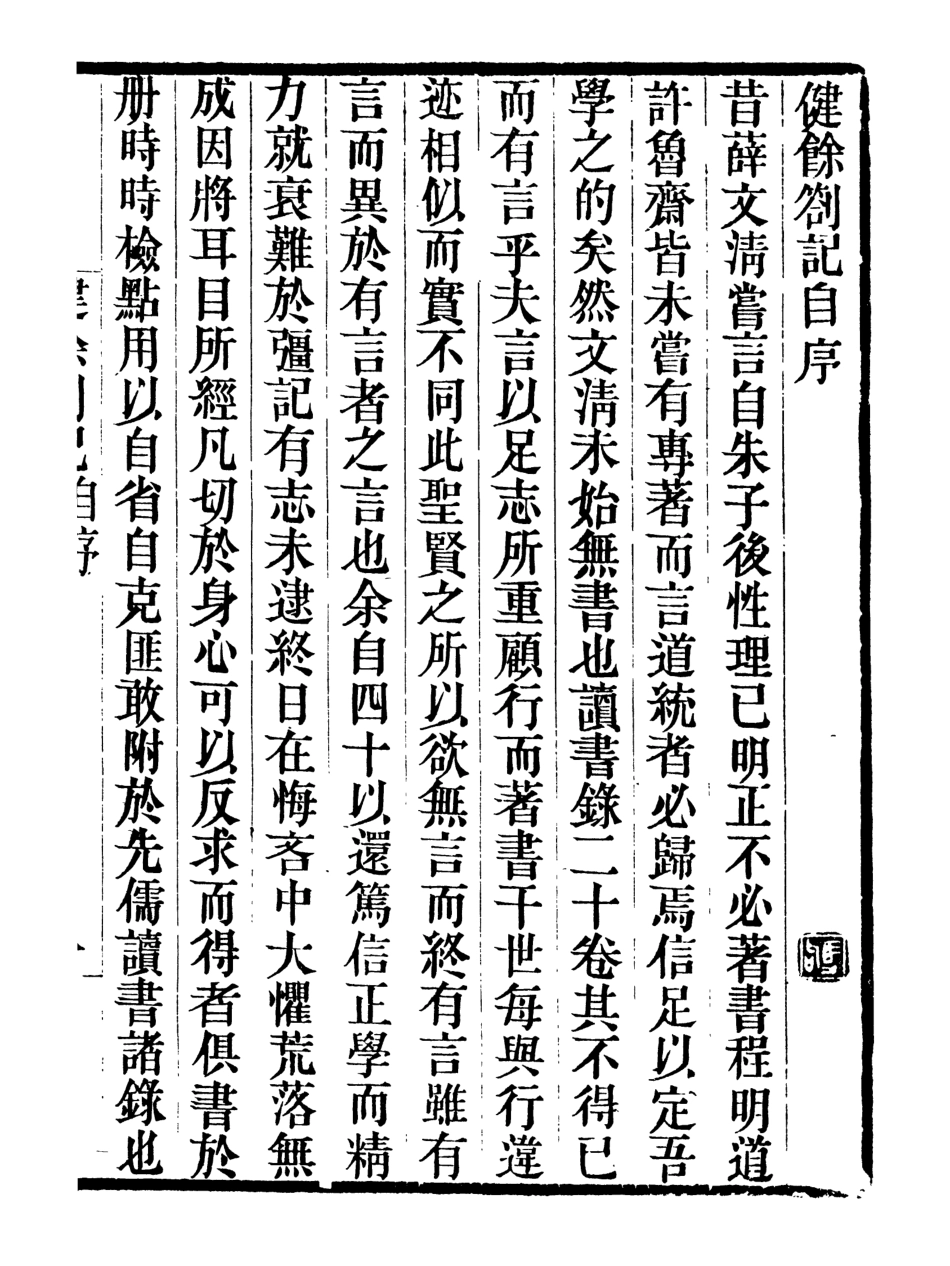 健餘劄記自序
昔薛文淸嘗言自朱子後性理已明正不必著書程明道
許魯齋皆未嘗有專著而言道統者必歸焉信足以定吾
學之的矣然文淸未始無書也讀書錄二十卷其不得已
而有言乎夫言以足志所重顧行而著書干世每與行違
迹相似而實不同此聖賢之所以欲無言而終有言雖有
言而異於有言者之言也余自四十以還篤信正學而精
力就衰難於彊記有志未逮終日在悔吝中大懼荒落無
成因將耳目所經凡切於身心可以反求而得者俱書於
册時時檢點用以自省自克匪敢附於先儒讀書諸錄也
自序